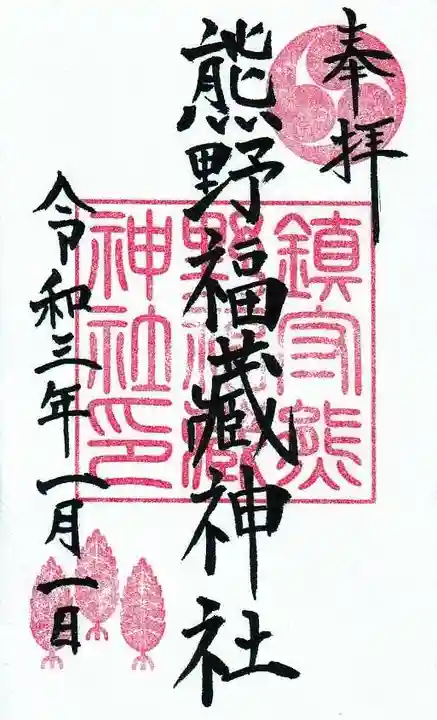 奉拝
熊野福蔵神社
令和三年一月一日
鎮守熊
野福蔵
神社印